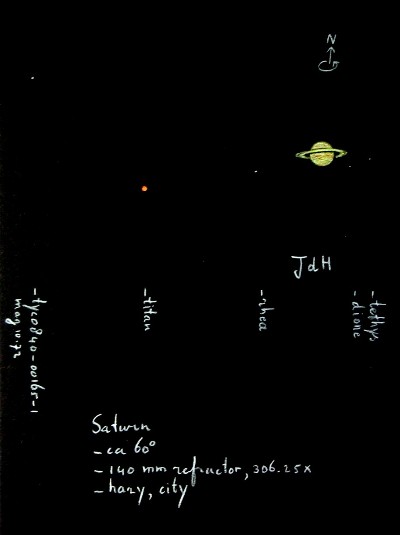 N
JdH
-tyc0840-00165-1
mag 10.72
-titan
-rhea
-dione
-tethys
Saturn
- ca 60°
- 140 mm refractor, 306.25x
- hazy, city